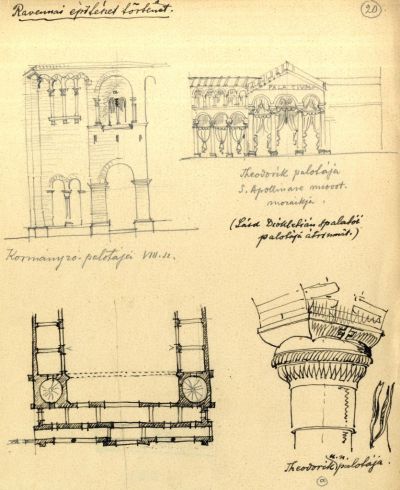 Ravennai építészet történet.
20
PALATIUM
Theodorik palotája
S. Apollinare nuovot.
mozaikja.
(Lásd Diokletián spalatói
palotája átriumát.)
Kormányzo-palotája VIII. sz.
u.n.
Theodorik palotája.